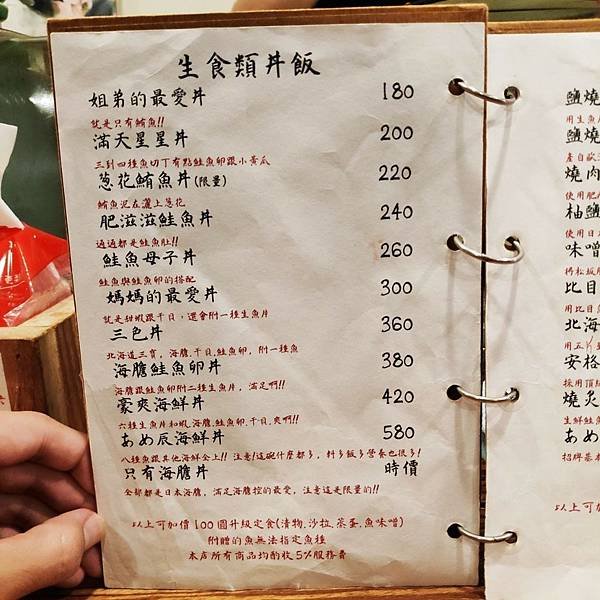 生食類丼飯
姐弟的最愛丼 180
就是只有鮪魚!!
滿天星星丼 200
三到四種魚切丁有點鮭魚卵跟小黃瓜
葱花鮪魚丼(限量) 220
鮪魚泥在灑上葱花
肥滋滋鮭魚丼 240
通通都是鮭魚肚!!
鮭魚母子丼 260
鮭魚與鮭魚卵的搭配
媽媽的最愛丼 300
就是甜蝦跟干貝,還會附一種生魚片
三色丼 360
北海道三寶,海膽.干貝.鮭魚卵,附一種魚
海膽鮭魚卵丼 380
海膽跟鮭魚卵附二種生魚片,滿足啊!!
豪爽海鮮丼 420
六種生魚片和蝦.海膽.鮭魚卵.干貝.爽啊!!
あめ辰海鮮丼 580
八種魚跟其他海鮮全上!! 注意!這碗什麼都多,料多飯多營養也很多!
只有海膽丼 時價
全部都是日本海膽,滿足海膽控的最愛,注意這是限量的!!
以上可加價100圓升級定食(漬物.沙拉.茶蛋.魚味噌)
附贈的魚無法指定魚種
本店所有商品均酌收5%服務費
鹽燒
用生魚
鹽燒
產自歐
燒肉
使用肥
柚鹽
使用日
味噌
將松板
比目
用比目
北海
用五片
安格
採用頂
燒炙
生鮮鮭
あめ
招牌基
以上可